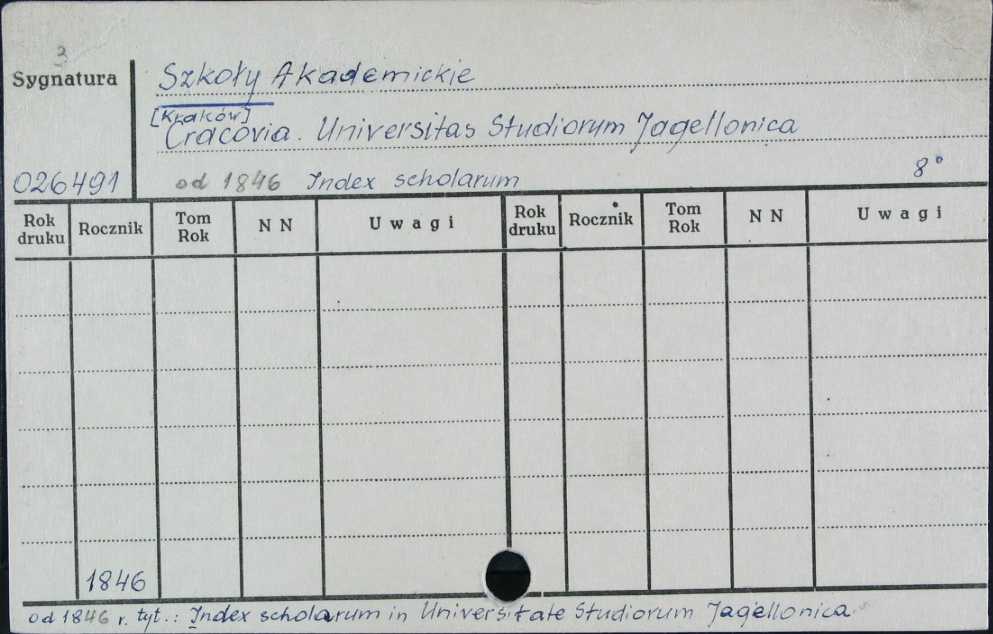 3
Sygnatura
Szkoły Akademickie
[Kraków]
Cracovia. Universitas Studiorum Jagellonica
026491 od 1846 Index scholarum 8°
Rok druku Rocznik Tom Rok N N Uwagi Rok druku Rocznik Tom Rok N N Uwagi
1846
od 1846 r. tyt.: Index scholarum in Universitate Studiorum Jagellonica